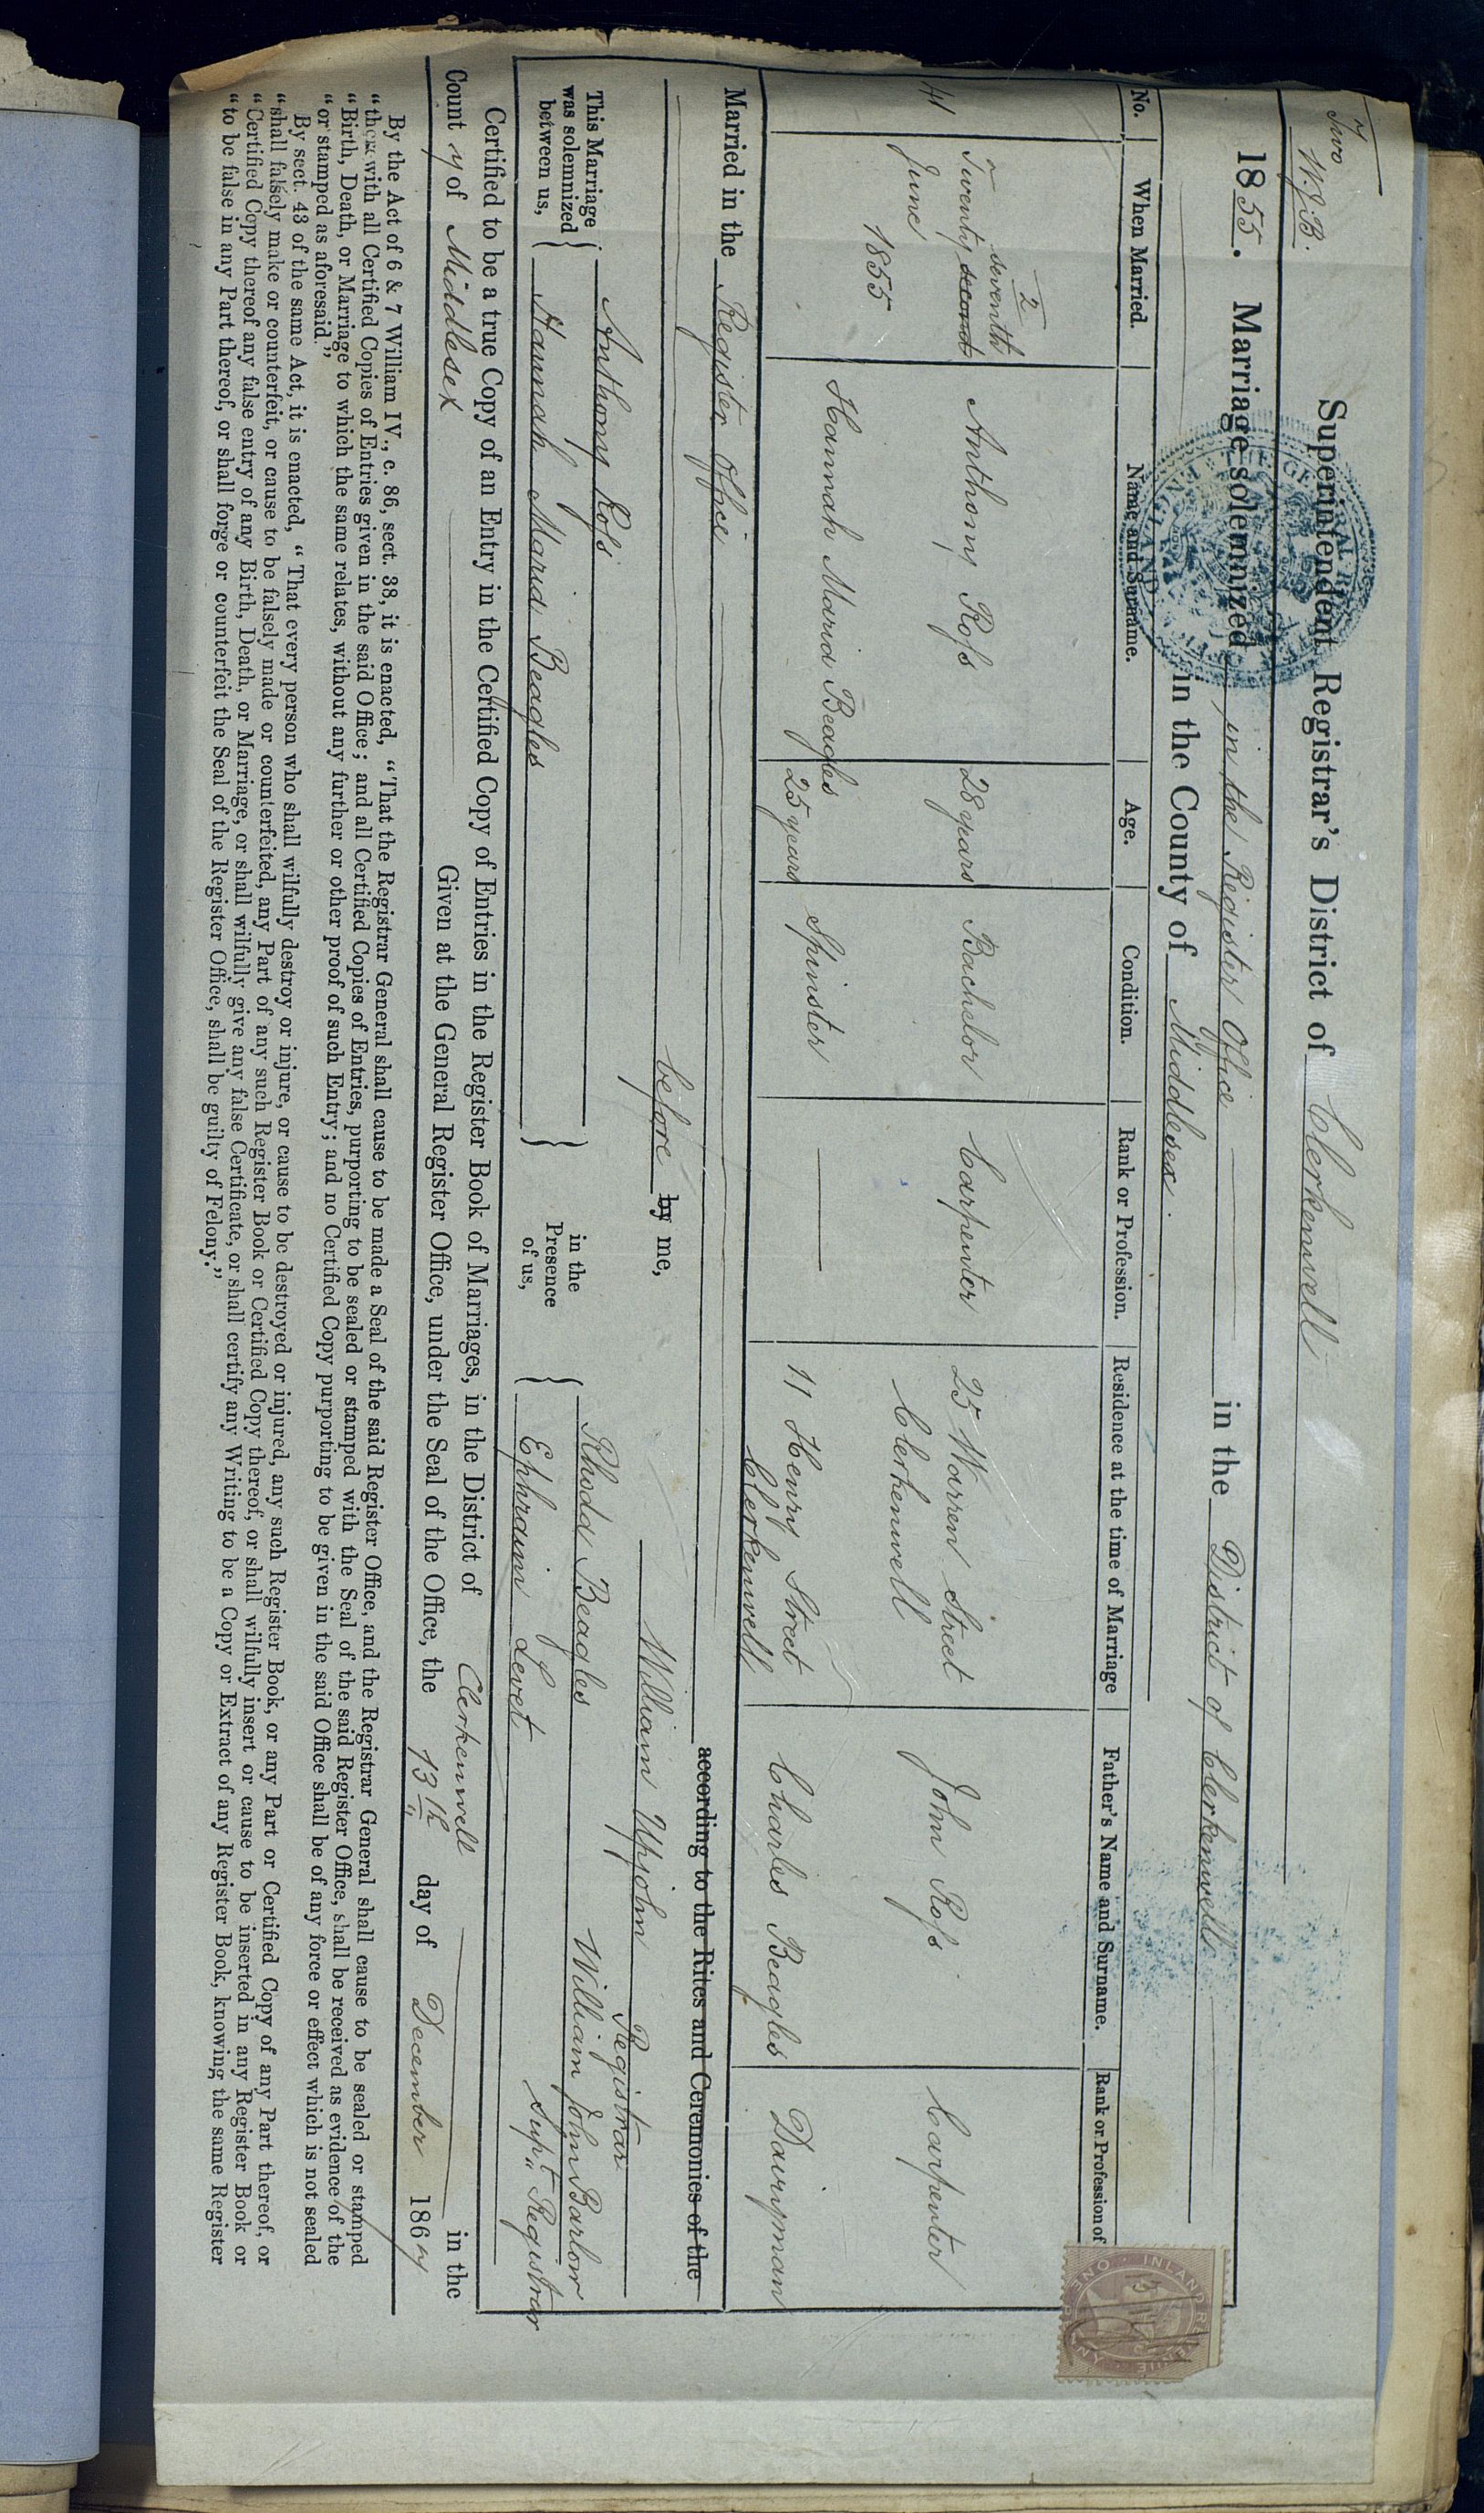 Two W.J.B.
Superintendent Registrar's District of Clerkenwell
1855. Marriage solemnized in the Register Office in the District of Clerkenwell
in the County of Middlesex.
No. When Married. Name and Surname. Age. Condition. Rank or Profession. Residence at the time of Marriage Father's Name and Surname. Rank or Profession of
2
seventh
41 Twenty second Anthony Roſs 28 years Bachelor Carpenter 25 Warren Street John Roſs Carpenter
June Clerkenwell
1855
Hannah Maria Beagles 25 years Spinster 11 Henry Street Charles Beagles Dairyman
Clerkenwell
Married in the Register Office according to the Rites and Ceremonies of the
before by me,
William Upjohn
Registrar
This Marriage was solemnized between us,
Anthony Roſs
Hannah Maria Beagles
in the Presence of us,
Rhoda Beagles
Ephraim Levet
William John Barlow
Supt Registrar
Certified to be a true Copy of an Entry in the Certified Copy of Entries in the Register Book of Marriages, in the District of Clerkenwell in the
County of Middlesex Given at the General Register Office, under the Seal of the Office, the 13th day of December 1867
By the Act of 6 & 7 William IV., c. 86, sect. 38, it is enacted, “That the Registrar General shall cause to be made a Seal of the said Register Office, and the Registrar General shall cause to be sealed or stamped
“therewith all Certified Copies of Entries given in the said Office; and all Certified Copies of Entries, purporting to be sealed or stamped with the Seal of the said Register Office, shall be received as evidence of the
“Birth, Death, or Marriage to which the same relates, without any further or other proof of such Entry; and no Certified Copy purporting to be given in the said Office shall be of any force or effect which is not sealed
“or stamped as aforesaid.”
By sect. 43 of the same Act, it is enacted, “That every person who shall wilfully destroy or injure, or cause to be destroyed or injured, any such Register Book, or any Part or Certified Copy of any Part thereof, or
“shall falsely make or counterfeit, or cause to be falsely made or counterfeited, any Part of any such Register Book or Certified Copy thereof, or shall wilfully insert or cause to be inserted in any Register Book or
“Certified Copy thereof any false entry of any Birth, Death, or Marriage, or shall wilfully give any false Certificate, or shall certify any Writing to be a Copy or Extract of any Register Book, knowing the same Register
“to be false in any Part thereof, or shall forge or counterfeit the Seal of the Register Office, shall be guilty of Felony.”